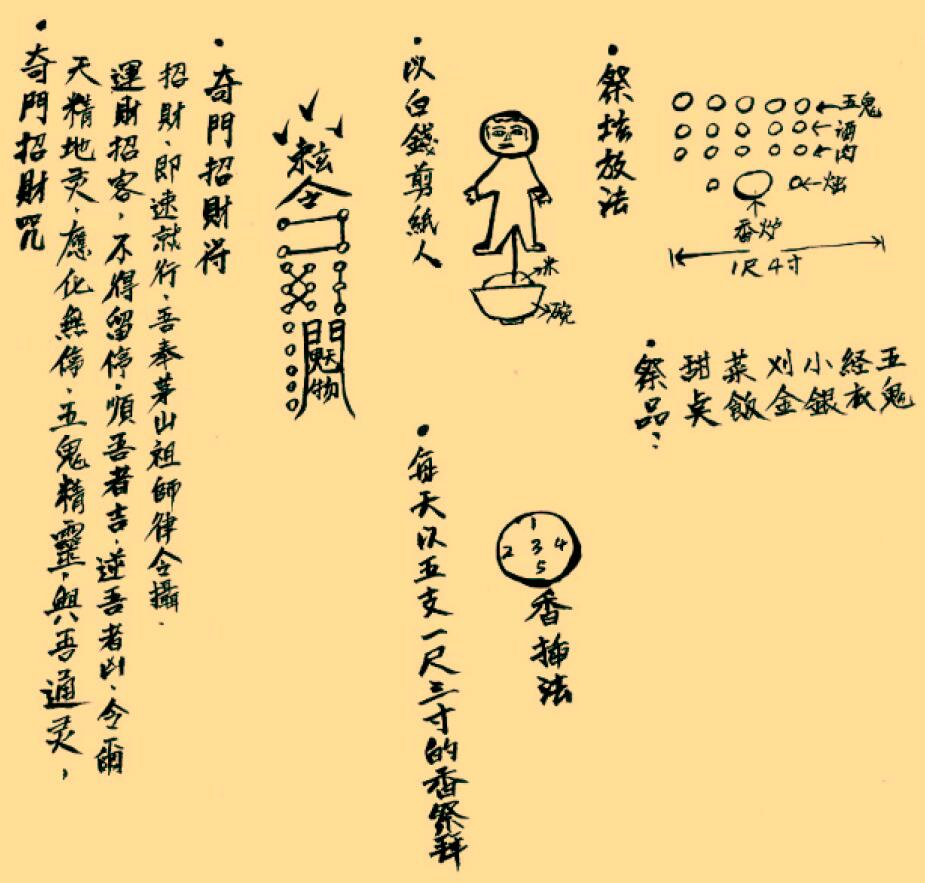 奇門招財咒
天精地灵，應化無停，五鬼精靈，與吾通灵，
運財招客，不得留停，順吾者吉，逆吾者凶，令爾
招財，即速就行，吾奉茅山祖師律令攝．
奇門招財符
令
以白錢剪紙人
米
碗
每天以五支一尺三寸的香祭拜
1
2 3 4
5
香插法
祭坛放法
五鬼
酒
肉
烛
香炉
1尺4寸
祭品：
甜点
菜飯
刈金
小銀
経衣
五鬼